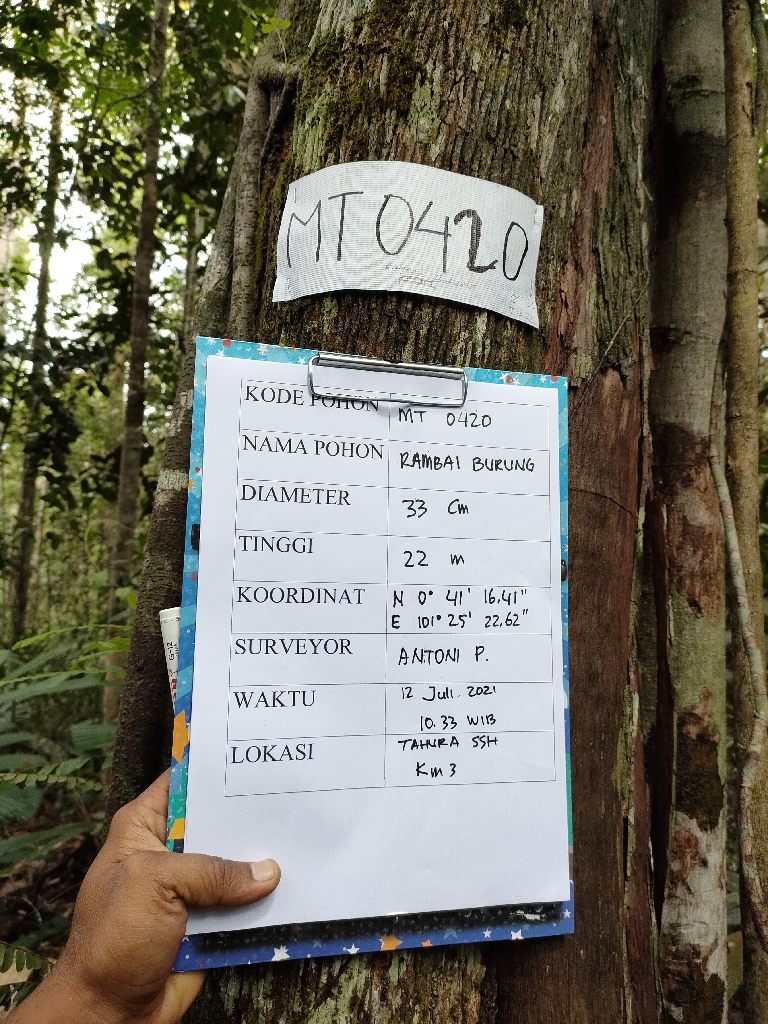 MT 0420
KODE POHON MT 0420
NAMA POHON RAMBAI BURUNG
DIAMETER 33 Cm
TINGGI 22 m
KOORDINAT N 0° 41' 16,41"
E 101° 25' 22,62"
SURVEYOR ANTONI P.
WAKTU 12 Juli 2021
10.33 WIB
LOKASI TAHURA SSH
Km 3